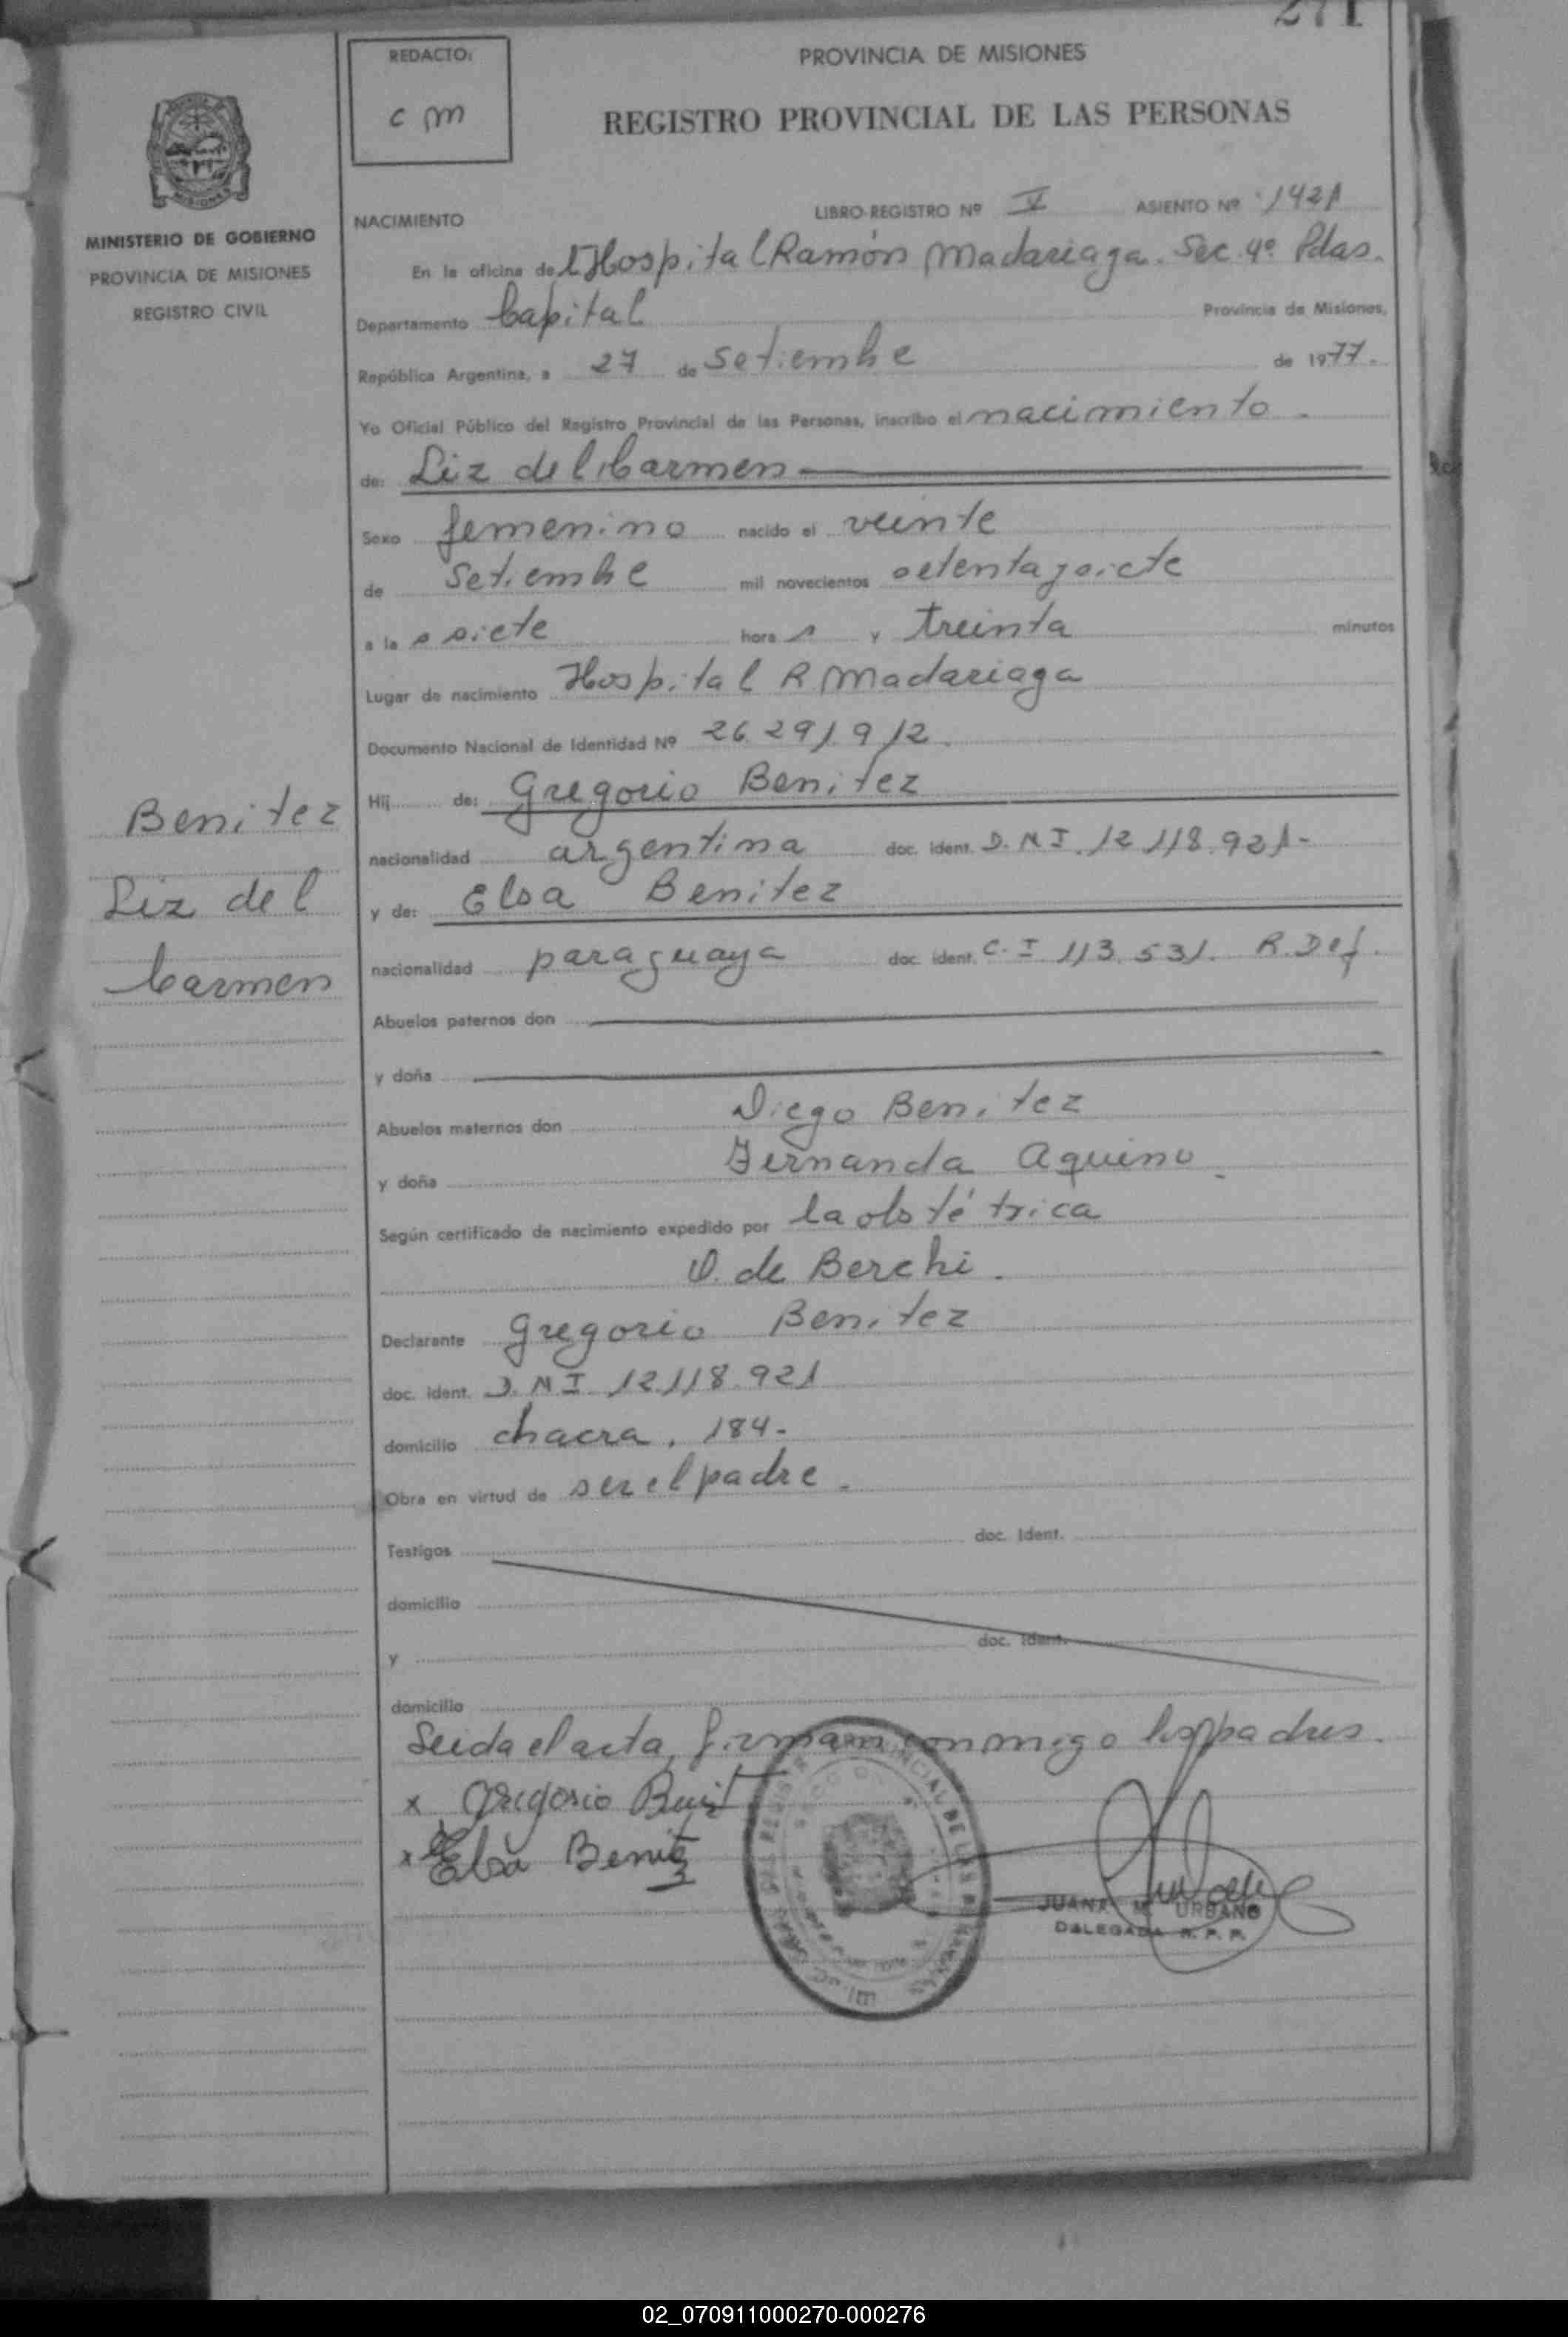 271
REDACTO:
c m
PROVINCIA DE MISIONES
REGISTRO PROVINCIAL DE LAS PERSONAS
MISIONES
MINISTERIO DE GOBIERNO
PROVINCIA DE MISIONES
REGISTRO CIVIL
NACIMIENTO LIBRO-REGISTRO Nº V ASIENTO Nº 1421
En la oficina del Hospital Ramón Madariaga. Sec. 4º Pdas.
Departamento Capital Provincia de Misiones,
República Argentina, a 27 de Setiembre de 1977.
Yo Oficial Público del Registro Provincial de las Personas, inscribo el nacimiento.
de: Liz del Carmen
Sexo femenino nacido el veinte
de Setiembre mil novecientos setenta y siete
a la s siete hora s y treinta minutos
Lugar de nacimiento Hospital R Madariaga
Documento Nacional de Identidad Nº 26.291.912.
Hij de: Gregorio Benitez
nacionalidad argentina doc. ident. D.N.I. 12.118.921-
y de: Elsa Benitez
nacionalidad paraguaya doc. ident. C.I 113.531. R.Def.
Benitez
Liz del
Carmen
Abuelos paternos don
y doña
Abuelos maternos don Diego Benitez
y doña Fernanda Aquino.
Según certificado de nacimiento expedido por la obstétrica
O. de Berchi.
Declarante Gregorio Benitez
doc. ident. D.N.I. 12.118.921
domicilio chacra, 184-
Obra en virtud de ser el padre.
Testigos doc. Ident.
domicilio
y doc. Ident.
domicilio
Leida el acta, firman conmigo los padres.
x Gregorio Benit
x Elsa Benitez
JUANA M. URBANO
DELEGADA R. P. P.
02_070911000270-000276